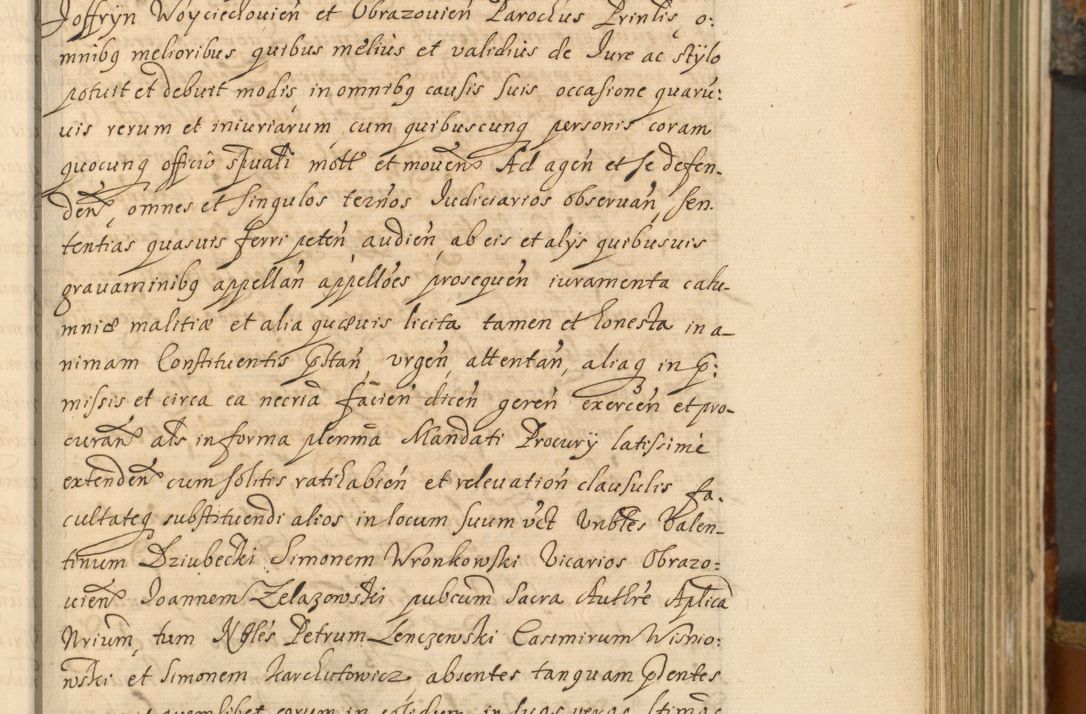 Joffryn Woyciechovień et Obrazovień Parochus Prinlis, o:
mnibq melioribus quibus melius et validius de Iure ac stylo
potuit et debuit modis in omnibq causis suis occasione quarū:
uis rerum et iniuriarum cum quibuscunq personis coram
quocunq officio spuali mott et moven Ad agen et se defen.
den, omnes et singulos ternos Iudiciarios observan, sen.
tentias quasuis ferri peteń audień, ab eis et alys quibusuis
gravaminibq appellań appellóes prosequeń iuramenta calu-
mniæ malitiæ et alia quævis licita tamen et honesta in a-
nimam Constituentis pstań, urgeń, attentań, aliaq in p:
missis et circa ea necria facień diceń gereń exerceń et pro-
curań als in forma plenma Mandati Procurÿ latissime
extendeń cum solitis ratihabień et relevationń clausulis fa.
cultateq substituendi alios in locum suum vct Vnbles Valen-
tinum Dziubecki Simonem Wronkowski Vicarios Obrazo:
vień Joannem Zelazowski pubcum Sacra Authre Aplica
Nrium, tum Nbles Petrum Lenczewski Casimirum Wisnio:
wski et Simonem Karchutowicz absentes tanquam pṡentes
quemlibet eorum in solidum in suos veros ltimos